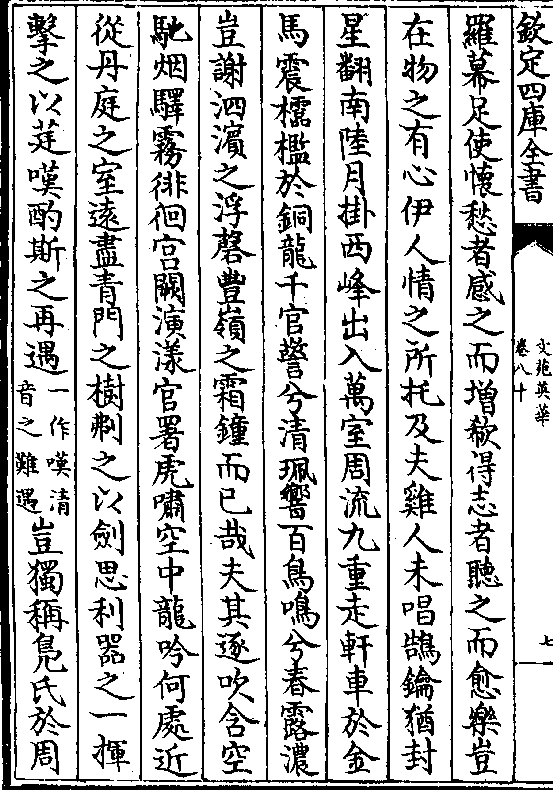 欽定四庫全書
文苑英華
卷八十
七
羅幕足使懷愁者感之而増欷得志者聽之而愈樂豈
在物之有心伊人情之所托及夫雞人未唱鵠鑰猶封
星翻南陸月掛西峰出入萬室周流九重走軒車於金
馬震櫺檻於銅龍千官警兮清珮響百鳥鳴兮春露濃
豈謝泗濵之浮磬豐嶺之霜鐘而已哉夫其逐吹含空
馳烟驛霧徘徊宫闕演漾官署虎嘯空中龍吟何處近
從丹庭之室逺盡青門之樹剸之以劍思利器之一揮
擊之以莛嘆酌斯之再遇一作嘆清音之難遇豈獨稱鳬氏於周